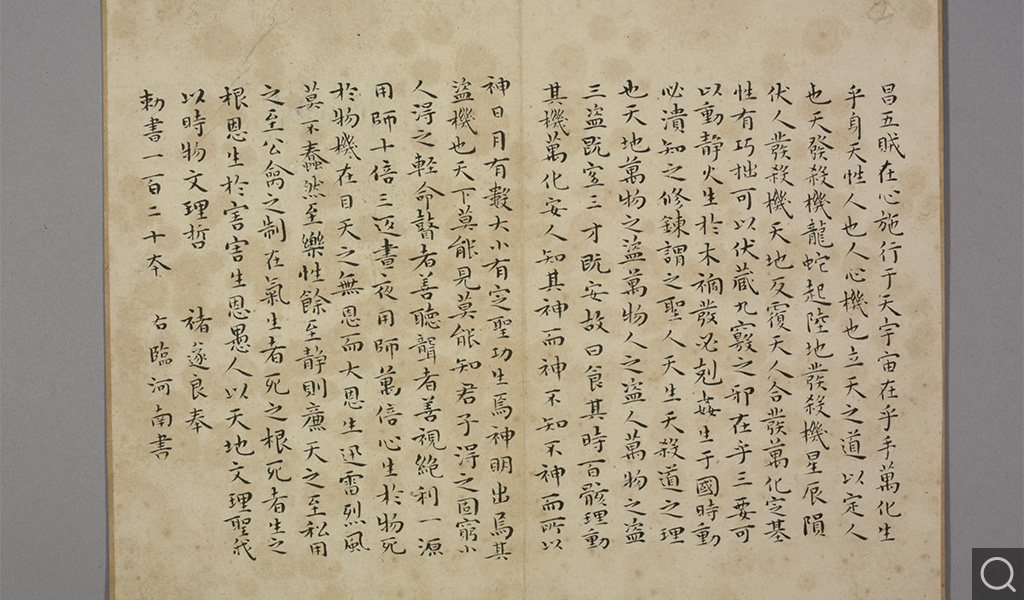 昌五賊在心施行于天宇宙在乎手萬化生
乎身天性人也人心機也立天之道以定人
也天發殺機龍蛇起陸地發殺機星辰隕
伏人發殺機天地反覆天人合發萬化定基
性有巧拙可以伏藏九竅之邪在乎三要可
以動静火生於木禍發必剋姦生于國時動
必潰知之修鍊謂之聖人天生天殺道之理
也天地萬物之盜萬物人之盜人萬物之盜
三盜既宜三才既安故曰食其時百骸理動
其機萬化安人知其神而神不知不神而所以
神日月有數大小有定聖功生焉神明出焉其
盜機也天下莫能見莫能知君子淂之固窮小
人淂之輕命瞽者善聽聾者善視絕利一源
用師十倍三返晝夜用師萬倍心生於物死
於物機在目天之無恩而大恩生迅雷烈風
莫不蠢然至樂性餘至静則廉天之至私用
之至公禽之制在氣生者死之根死者生之
根恩生於害害生恩愚人以天地文理聖我
以時物文理哲 褚遂良奉
勑書一百二十本 右臨河南書